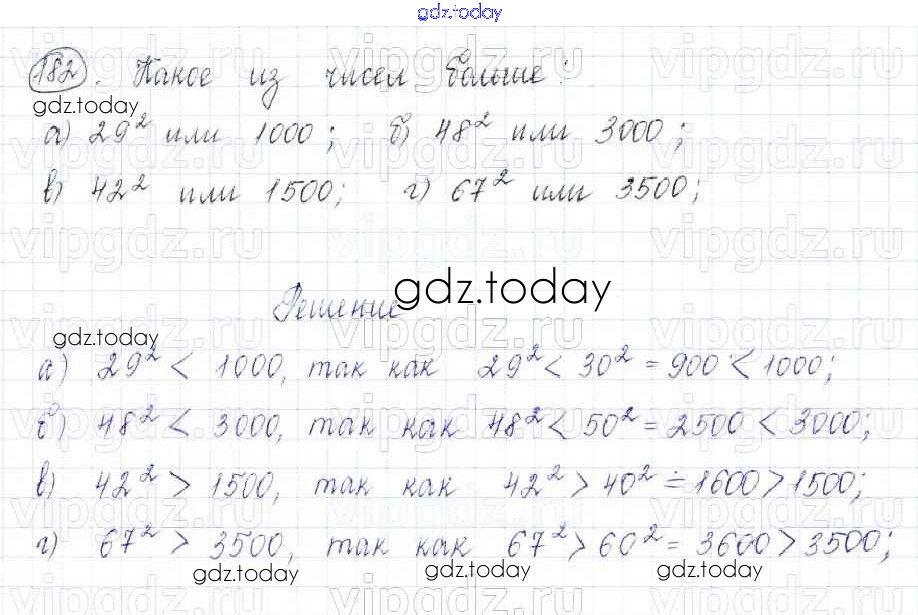 gdz.today
182. Какое из чисел больше:
gdz.today
а) 29² или 1000; б) 48² или 3000;
в) 42² или 1500; г) 67² или 3500;
vipgdz.ru vipgdz.ru vipgdz.ru
gdz.today
Решение
gdz.today
а) 29² < 1000, так как 29² < 30² = 900 < 1000;
б) 48² < 3000, так как 48² < 50² = 2500 < 3000;
в) 42² > 1500, так как 42² > 40² = 1600 > 1500;
г) 67² > 3500, так как 67² > 60² = 3600 > 3500;
gdz.today gdz.today gdz.today